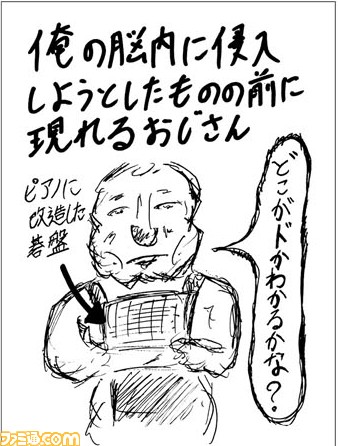 俺の脳内に侵入
しようとしたものの前に
現れるおじさん
ピアノに
改造した
碁盤
どこがドかわかるかな？。
ファミ通.com